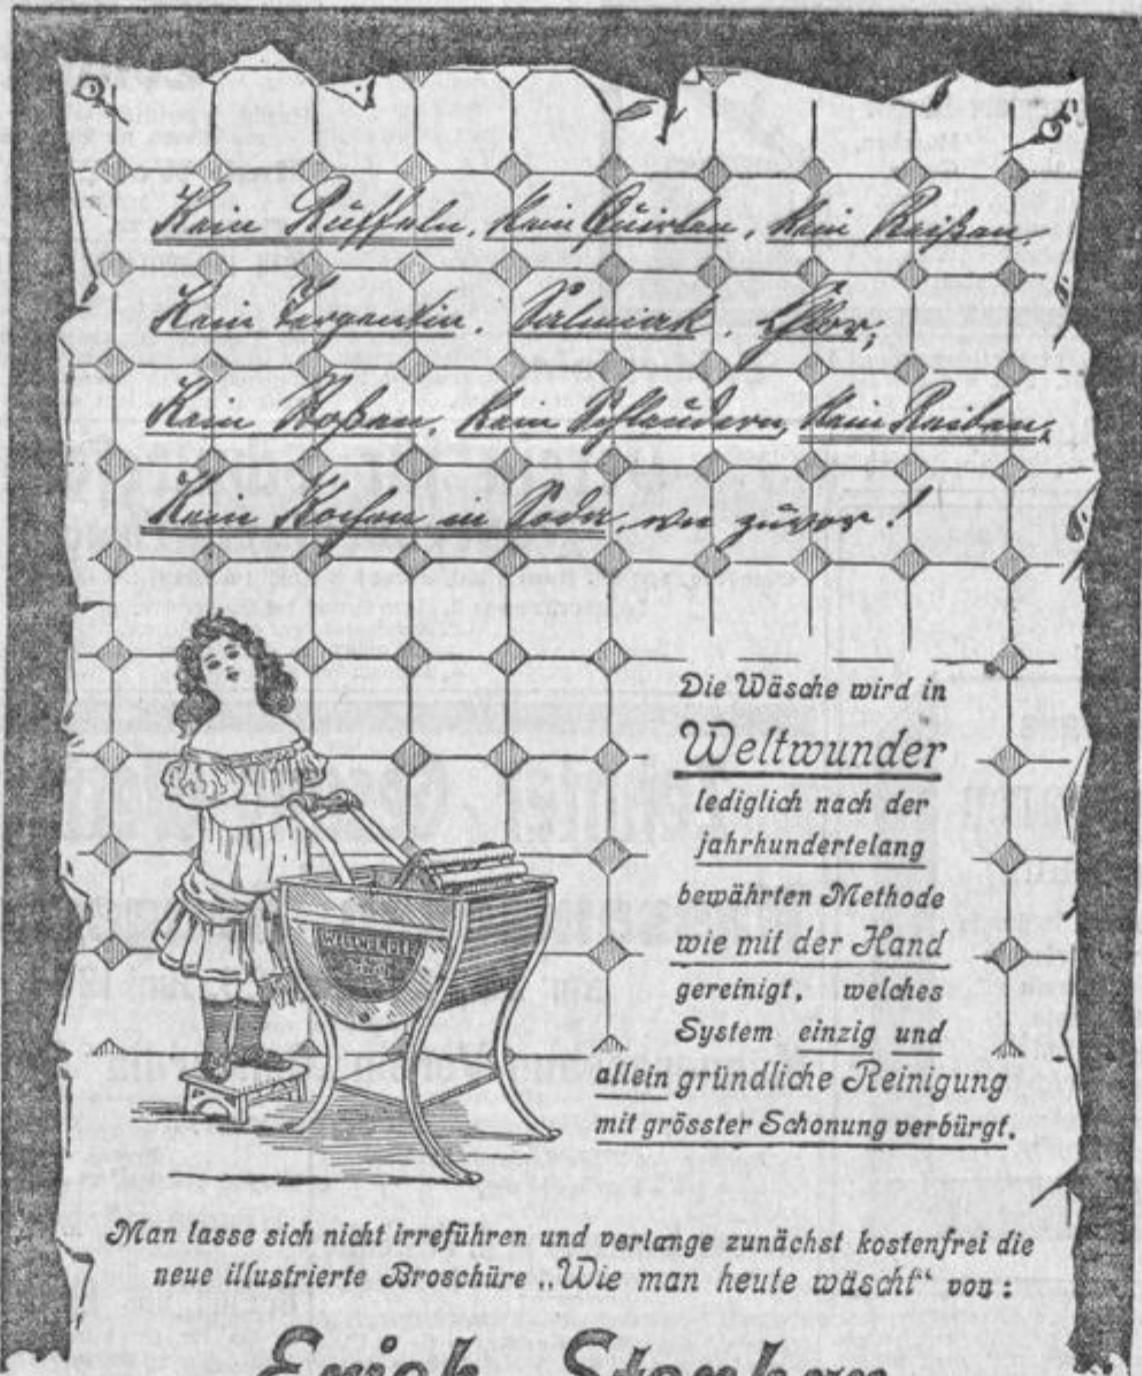 Kein Rüffeln, kein Quirlen, kein Reißen,
Kein Terpentin, Salmiak, Chlor,
Kein Stoßen, kein Schleudern, kein Reiben,
Kein Kochen in Soda, wie zuvor!
Die Wäsche wird in
Weltwunder
lediglich nach der
jahrhundertelang
bewährten Methode
wie mit der Hand
gereinigt, welches
System einzig und
allein gründliche Reinigung
mit grösster Schonung verbürgt.
WELTWUNDER
Man lasse sich nicht irreführen und verlange zunächst kostenfrei die
neue illustrierte Broschüre „Wie man heute wäscht“ von:
Erich